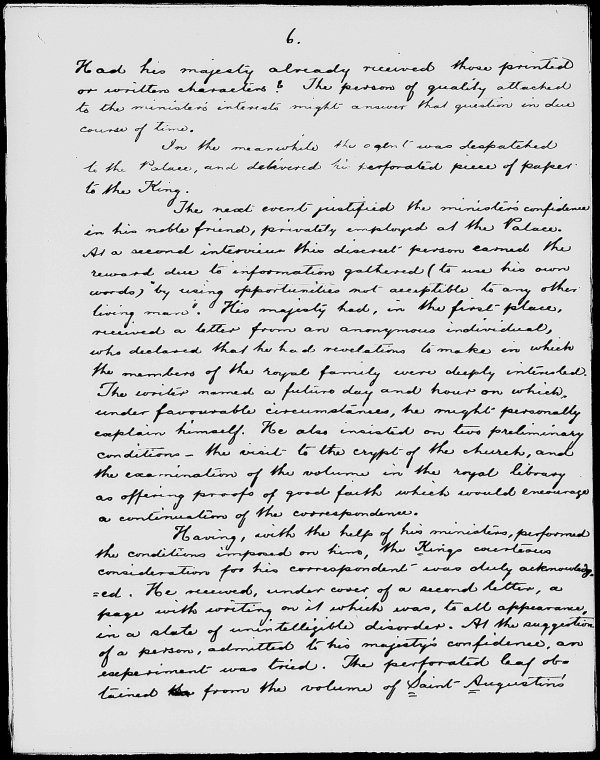 6.
Had his majesty already received those printed
or written characters? The person of quality attached
to the minister's interests might answer that question in due
course of time.
In the meanwhile the agent was despatched
to the Palace, and delivered his perforated piece of paper
to the King.
The next event justified the minister's confidence
in his noble friend, privately employed at the Palace.
At a second interview this discreet person earned the
reward due to information gathered (to use his own
words) "by using opportunities not acceptible to any other
living man". His majesty had, in the first place,
received a letter from an anonymous individual,
who declared that he had revelations to make in which
the members of the royal family were deeply interested.
The writer named a future day and hour on which,
under favourable circumstances, he might personally
explain himself. He also insisted on two preliminary
conditions – the visit to the crypt of the church, and
the examination of the volume in the royal library
as offering proofs of good faith which would encourage
a continuation of the correspondence.
Having, with the help of his ministers, performed
the conditions imposed on him, the Kings courteous
consideration for his correspondent was duly acknowledg-
=ed. He received, under cover of a second letter, a
page with writing on it which was, to all appearance,
in a state of unintelligible disorder. At the suggestion
of a person, admitted to his majesty's confidence, an
experiment was tried. The perforated leaf ob-
tained from the volume of Saint Augustin's